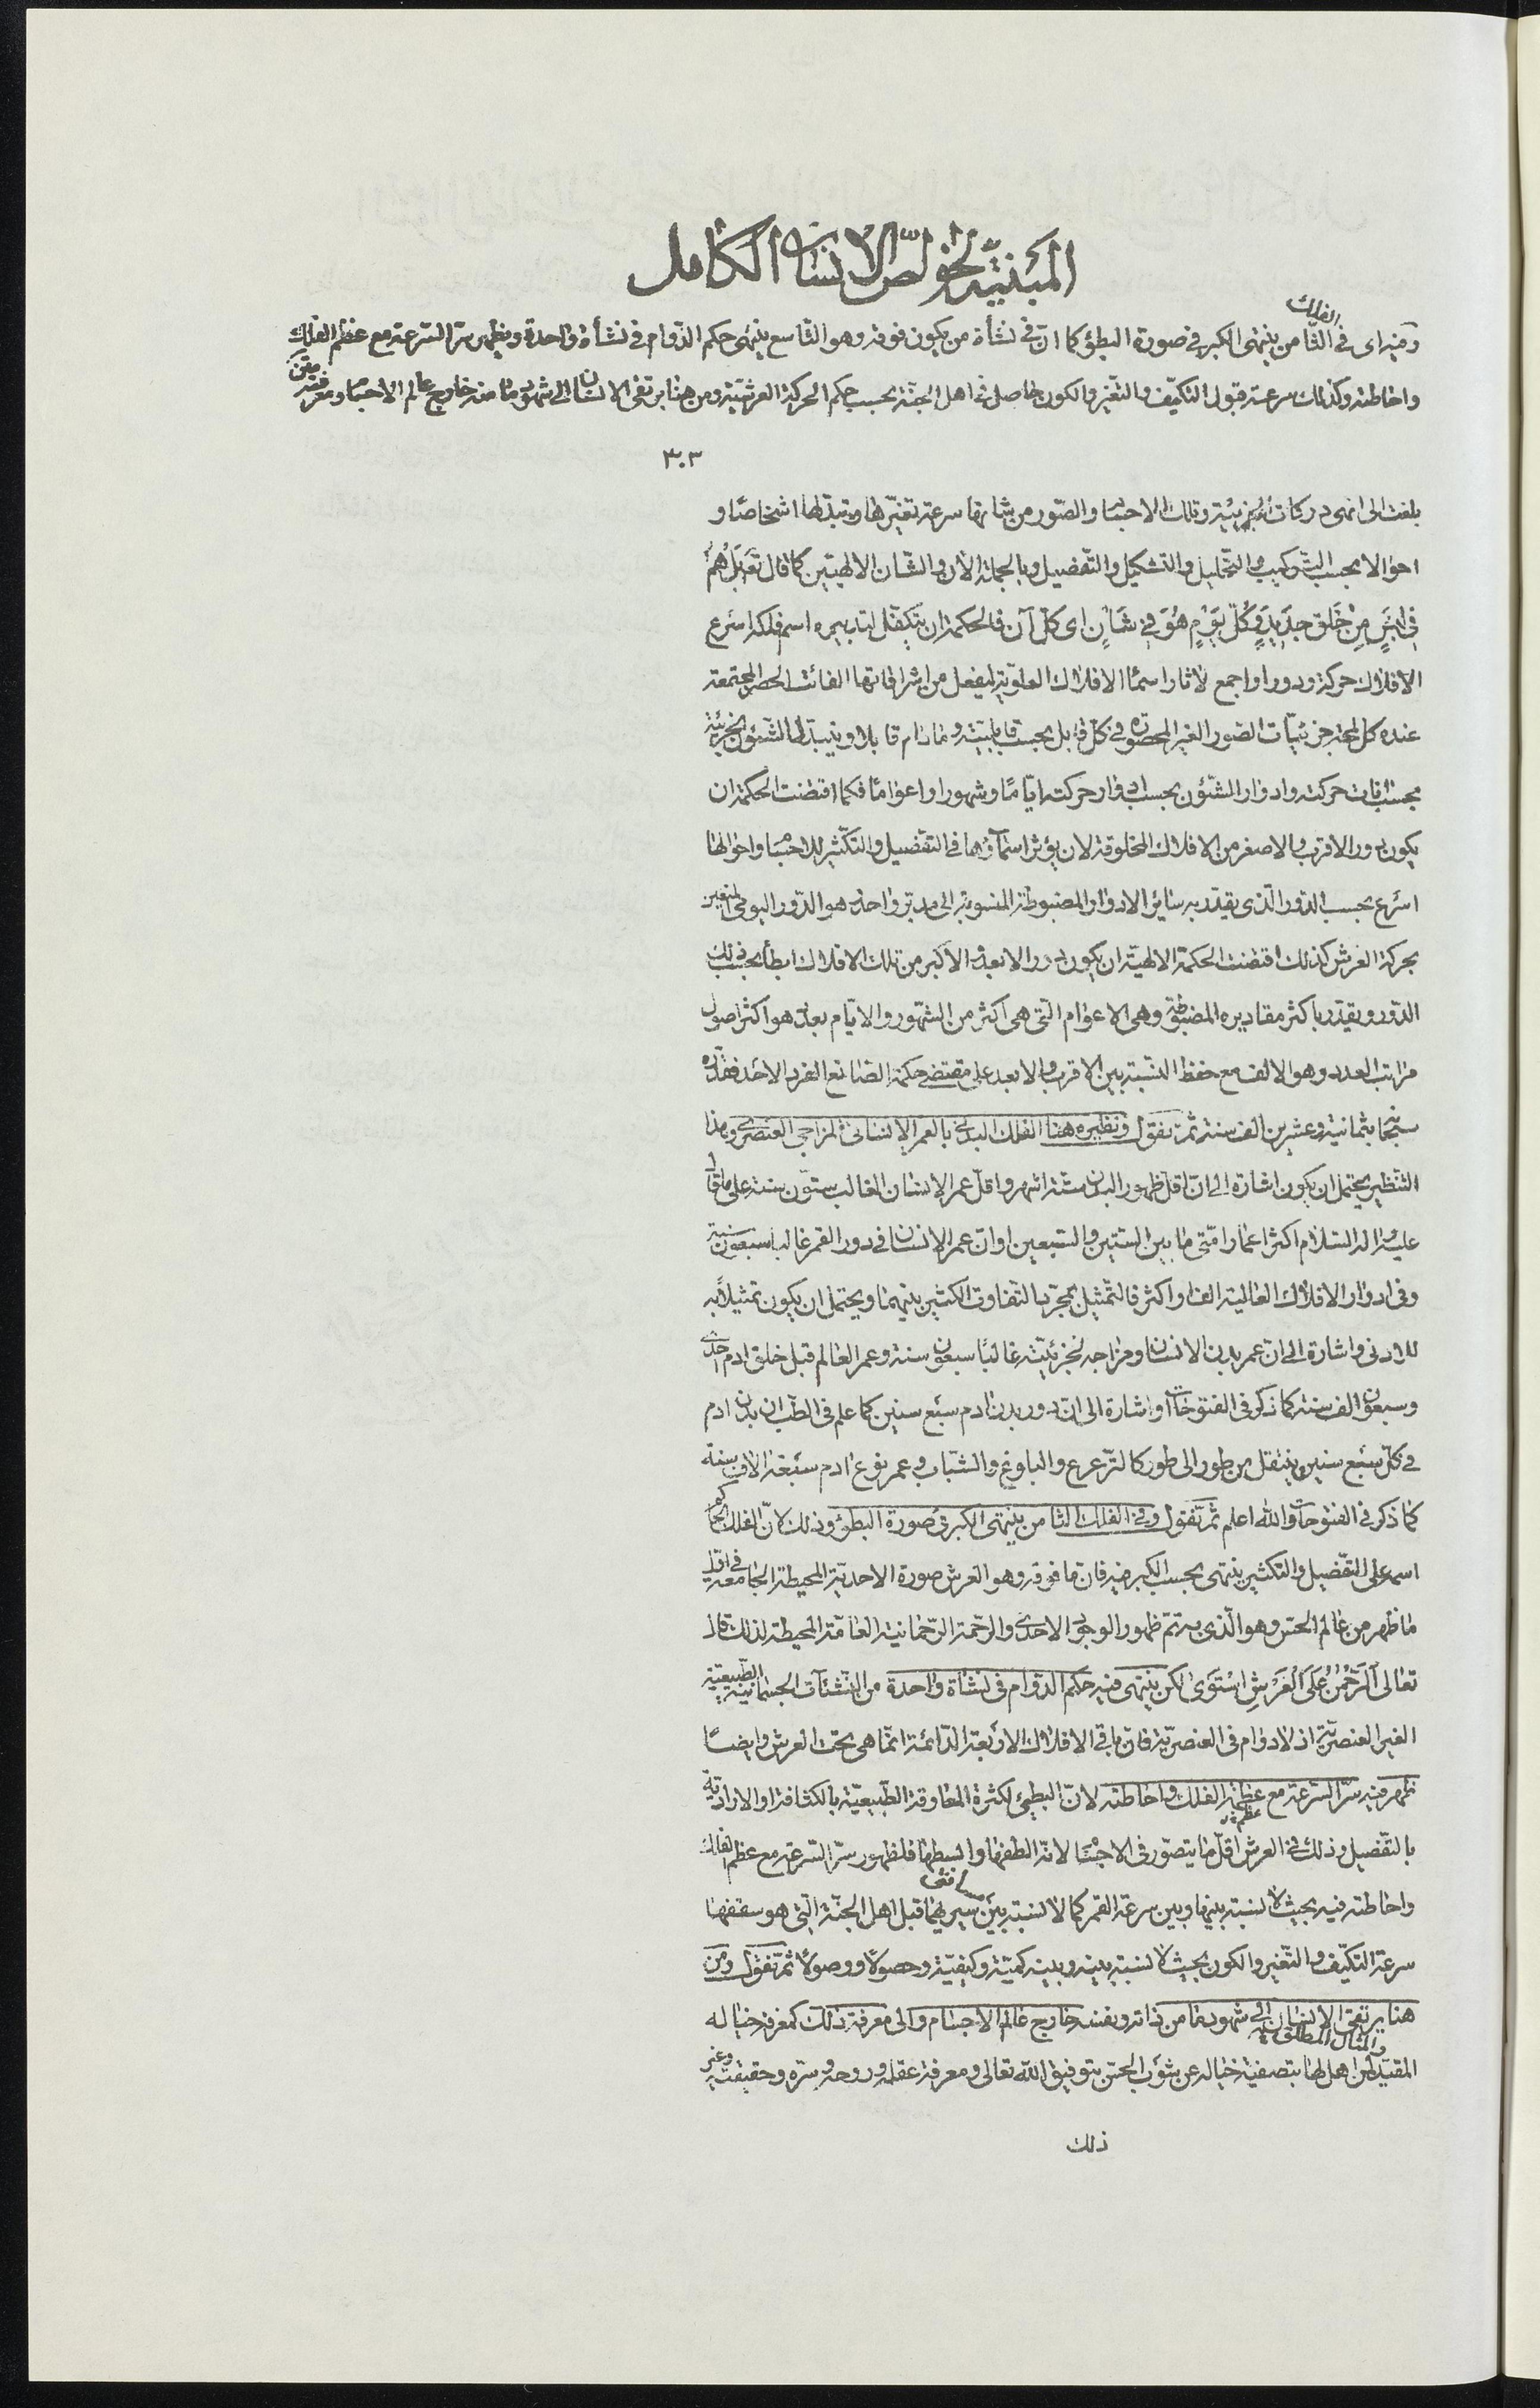 المبنية لخواص الانسان الكامل
الفلك
وفيه اى فى الثامن ينتهى الكبر فى صورة البطؤ كما ان فى نشأة من يكون فوقه وهو التاسع ينتهى حكم الدوام فى نشأة واحدة ويظهر سر السرعة مع عظم الفلك
واحاطته وكذلك سرعة قبول التكيف والتغير والكون حاصل فى اهل الجنة بحسب حكم الحركة العرشية ومن هنا يرتقى الانسان الى شهود ما منه خارج عالم الاجسام ومعرفته
٣٠٣
بلغت الى انهى دركات الجزئية وتلك الاجسام والصور من شانها سرعة تغيرها وتبدلها اشخاصا و
احوالا بحسب التركيب والتحليل والتشكيل والتفصيل وبالجملة الان والشان الالهيين كما قال تعالى بَلْ هُمْ
فِى لَبْسٍ مِنْ خَلْقٍ جَدِيدٍ وكُلَّ يَوْمٍ هُوَ فِى شَأْنٍ اى كل آن فالحكمة ان يتكفل لتدبيره اسم فلكه اسرع
الافلاك حركة ودورا واجمع لاثار اسماء الافلاك العلوية ليفعل من اشراقاتها الفائت الحصر المجتمعة
عنده كل لمحة جزئيات الصور الغير المحصورة فى كل قابل بحسب قابليته وما دام قابلا ويتبدل الشئون الجزئية
بحسب آنات حركته وادوار الشئون بحسب ادوار حركته اياما وشهورا واعواما فكما اقتضت الحكمة ان
يكون دور الاقرب والاصغر من الافلاك المخلوقة لان يؤثر اسماؤها فى التفصيل والتكثير للاجسام واحوالها
اسرع بحسب الدور الذى يقدر به سائر الادوار المضبوطة المنسوبة الى مدبر واحد هو الدور اليومى المتعين
بحركة العرش كذلك اقتضت الحكمة الالهية ان يكون دور الابعد والاكبر من تلك الافلاك ابطأ بحسب ذلك
الدور ويقدر باكثر مقاديره المضبوطة وهى الاعوام التى هى اكثر من الشهور والايام بعدد هو اكثر اصول
مراتب العدد وهو الالف مع حفظ النسبة بين الاقرب والابعد على مقتضى حكمة الصانع الفرد الاحد فقدره
سبحانه بثمانية وعشرين الف سنة ثم نقول ونظيره هنا الفلك البدلى بالعمر الانسانى المزاجى العنصرى وهذا
التنظير يحتمل ان يكون اشارة الى ان اقل ظهور البدن ستة اشهر واقل عمر الانسان الغالب ستون سنة على ما قال
عليه واله السلام اكثر اعمار امتى ما بين الستين والسبعين او ان عمر الانسان فى دور القمر غالبا سبعون سنة
وفى ادوار الافلاك العالية الف او اكثر فالتمثيل بمجرد التفاوت الكثير بينهما ويحتمل ان يكون تمثيلا به
للادنى واشارة الى ان عمر بدن الانسان ومزاجه الجزئية غالبا سبعون سنة وعمر العالم قبل خلق ادم احدى
وسبعون الف سنة كما ذكر فى الفتوحات او اشارة الى ان دور بدن ادم سبع سنين كما علم فى الطب ان بدن ادم
فى كل سبع سنين ينتقل من طور الى طور كالترعرع والبلوغ والشباب وعمر نوع ادم سبعة الاف سنة
كما ذكر فى الفتوحات والله اعلم ثم نقول وفى الفلك الثامن ينتهى الكبر فى صورة البطؤ وذلك لان الفلك الحاكم
اسمه على التفصيل والتكثير ينتهى بحسب الكبر فيه فان ما فوقه وهو العرش صورة الاحدية المحيطة الجامعة فى اول
ما ظهر من عالم الحس وهو الذى به تم ظهور الوجود الاحدى والرحمة الرحمانية العامة المحيطة لذلك قال
تعالى اَلرَّحْمٰنُ عَلَى الْعَرْشِ اسْتَوٰى لكن ينتهى فيه حكم الدوام فى نشأة واحدة من النشئات الجسمانية الطبيعية
الغير العنصرية اذ لا دوام فى العنصرية فان ما فى الافلاك الاربعة الدائمة انما هى تحت العرش وايضا
ظهر فيه سر السرعة مع عظمة الفلك واحاطته لان البطئ لكثرة المعاوقة الطبيعية بالكثافة او الارادية
بالتفصيل وذلك فى العرش اقل ما يتصور فى الاجسام لانه الطفها وابسطها فلظهور سر السرعة مع عظم الفلك
واحاطته فيه بحيث لا نسبة بينها وبين سرعة القمر كما لا نسبة بين سيريهما قبل اهل الجنة التى هو سقفها
سرعة التكيف والتغير والكون بحيث لا نسبة بينه وبينه كمية وكيفية وحصولا ووصولا ثم نقول ومن
هنا يرتقى الانسان الى شهود ما من ذاته ونفسه خارج عالم الاجسام والى معرفة ذلك كمعرفة خياله
والمثال المطلق
المقيد لمن اهل لها بتصفية خياله عن شوب الحس بتوفيق الله تعالى ومعرفة عقله وروحه وسره وحقيقته وغير
ذلك